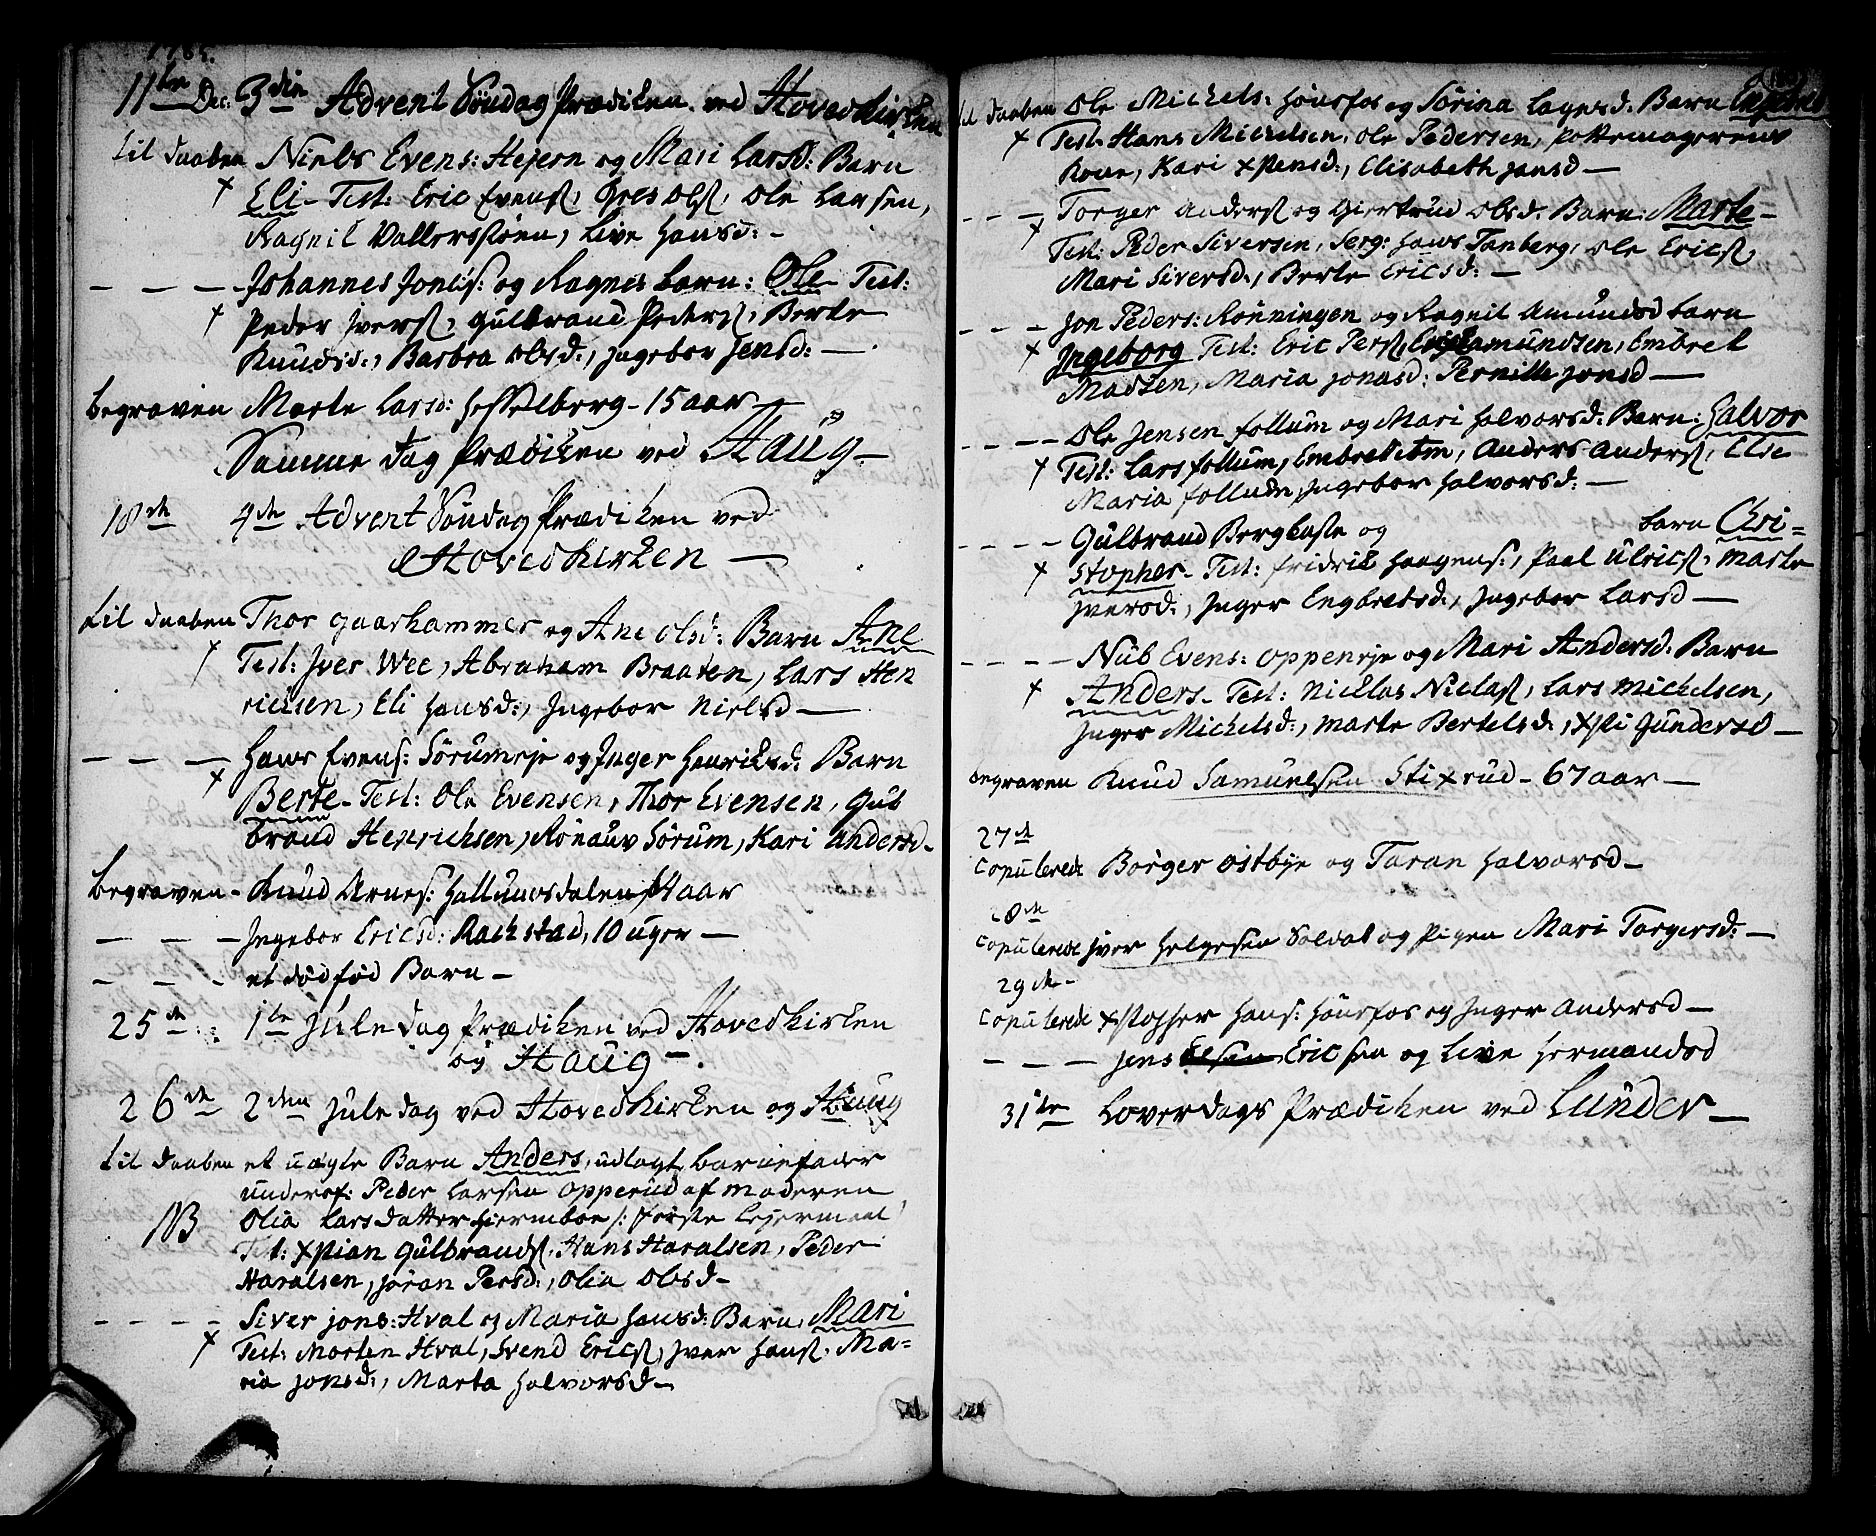 1785.
11te Dec: 3die Advent Söndag Prædiken ved Hovedkirken
til daaben Niels Evens: Hejern og Mari Larsd: Barn
+ Eli - Test: Eric Evens:, Gres Ols:, Ole Larsen,
Ragnil Vallerstöen, Live Hansd: -
- - - Johannes Jons: og Ragnes barn: Ole Test:
+ Peder Ivers:, Gulbrand Peders:, Berte
Knudsd:, Barbra Olsd:, Ingebor Jensd: -
begraven Marte Larsd: Hesselberg - 15 aar -
Samme dag Prædiken ved Haug -
18de 4de Advent Söndag Prædiken ved
Hovedkirken -
til daaben Thor gaarhammer og Ane Olsd: Barn Ane
+ Test: Iver Wee, Abraham Braaten, Lars Hen
richsen, Eli Hansd:, Ingebor Nielsd -
- - - Hans Evens: Sörumeje og Inger Henriksd: Barn
+ Berte - Test: Ole Evensen, Thor Evensen, Gul
brand Henrichsen, Rönauv Sörum, Kari Andersd -
begraven - Knud Arnes: Hallingsdalen aar
- - - Ingebor Ericsd: Rachstad, 10 uger -
- - - et dödfödt Barn -
25de 1te Jule dag Prædiken ved Hovedkirken
og Haug -
26de 2den Jule dag ved Hovedkirken og Haug
til daaben et uægte Barn Anders, udlagt barnefader
underof: Peder Larsen Opperud af moderen
NB Olia Larsdatter Hiermboe /: förste Lejermaal
Test: Xstian Gulbrands:, Hans Haralsen, Peder
Haralsen, Jöran Persd:, Olia Olsd -
- - - - Siver Jons: Hval og Maria Hansd: Barn: Mari
+ Test: Morten Hval, Svend Erics:, Iver Hans:, Ma=
ria Jonsd:, Marta Halvorsd -
til daaben Ole Michels: Hönefos og Sörina Lagesd: Barn
+ Test: Hans Michelsen, Ole Pedersen, Pottemagerens
Kone, Kari Xstensd:, Elisabeth Jansd -
- - - Torger Anders: og Giertrud Olsd: Barn: Marte -
+ Test: Peder Siversen, Serg: Hans Tanberg, Ole Erics:,
Mari Siversd:, Berte Ericsd: -
- - - Jon Peders: Rönningen og Ragnil Amundsd barn
+ Ingeborg Test: Eric Pers:, Amundsen, Embret
Madsen, Maria Jonasd: Pernille Jonsd -
- - - - Ole Jensen Follum og Mari Halvorsd: Barn: Halvor
+ Test: Lars Follum, Embret, Anders Anders:, Else
Maria Follum, Ingebor Halvorsd: -
- - - - Gulbrand Bergkaste og barn Chri=
+ stopher - Test: Fridrik Haagens:, Paal Ulrics:, Marte
Iversd:, Inger Engbretsd:, Ingebor Larsd -
- - - - Nub Evens: Oppeneje og Mari Andersd: Barn
+ Anders - Test: Nicklas Niclas:, Lars Michelsen,
Inger Michelsd:, Marte Bertelsd:, Xsti Gundersd -
begraven Knud Samuelsen Stixrud - 67 aar -
27de
Copulerede Börger Östbye og Taran Halvorsd -
28de
Copulerede Iver Helgesen Soldat og Pigen Mari Torgersd: -
29de -
Copulerede Xstopher Hans: Hönefos og Inger Andersd -
- - - Jens Ericsen og Live Hermandsd
31te Löverdags Prædiken ved Lunder -